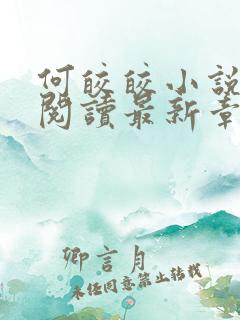 何皎皎小說
閱讀最新章
卿言月
未经同意禁止转载